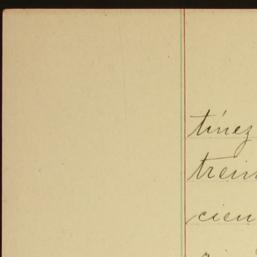 tínez
trein
cien